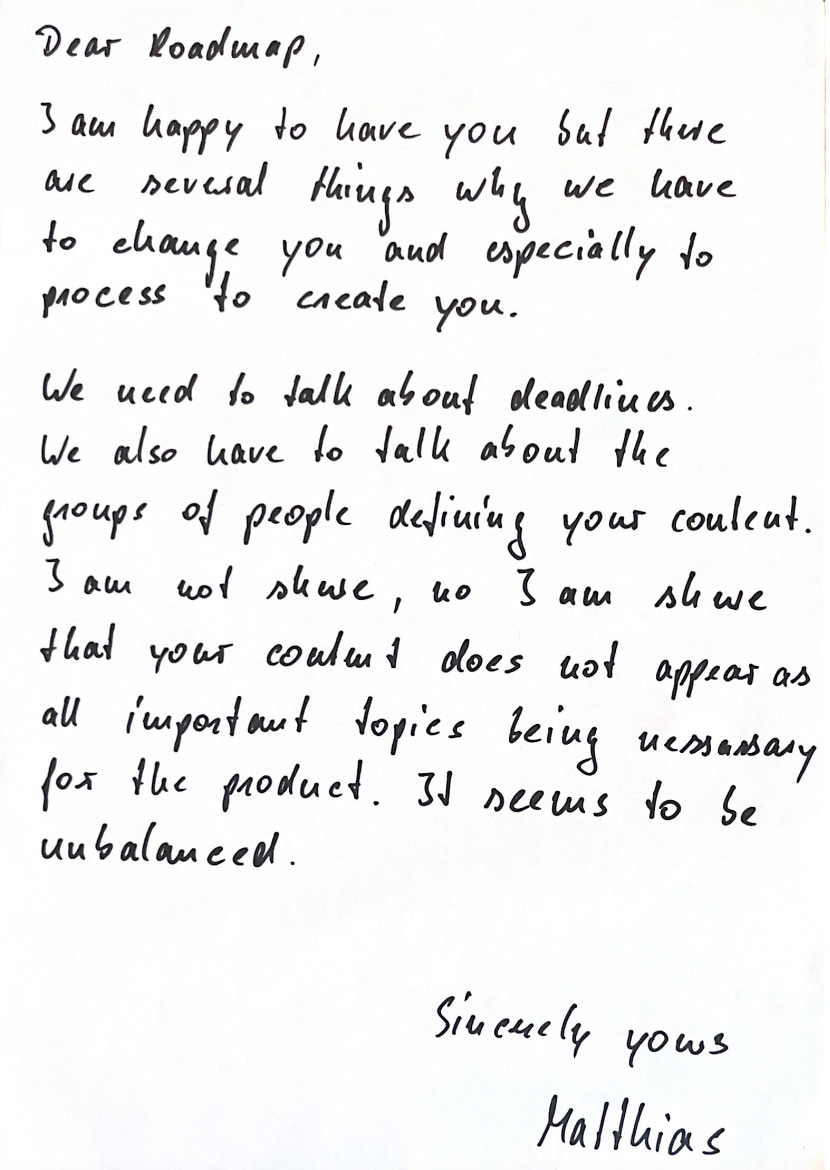 Dear Roadmap,
I am happy to have you but there
are several things why we have
to change you and especially to
process to create you.
We need to talk about deadlines.
We also have to talk about the
groups of people defining your content.
I am not shure, no I am shure
that your content does not appear as
all important topics being nessassary
for the product. It seems to be
unbalanced.
Sincerely yours
Matthias